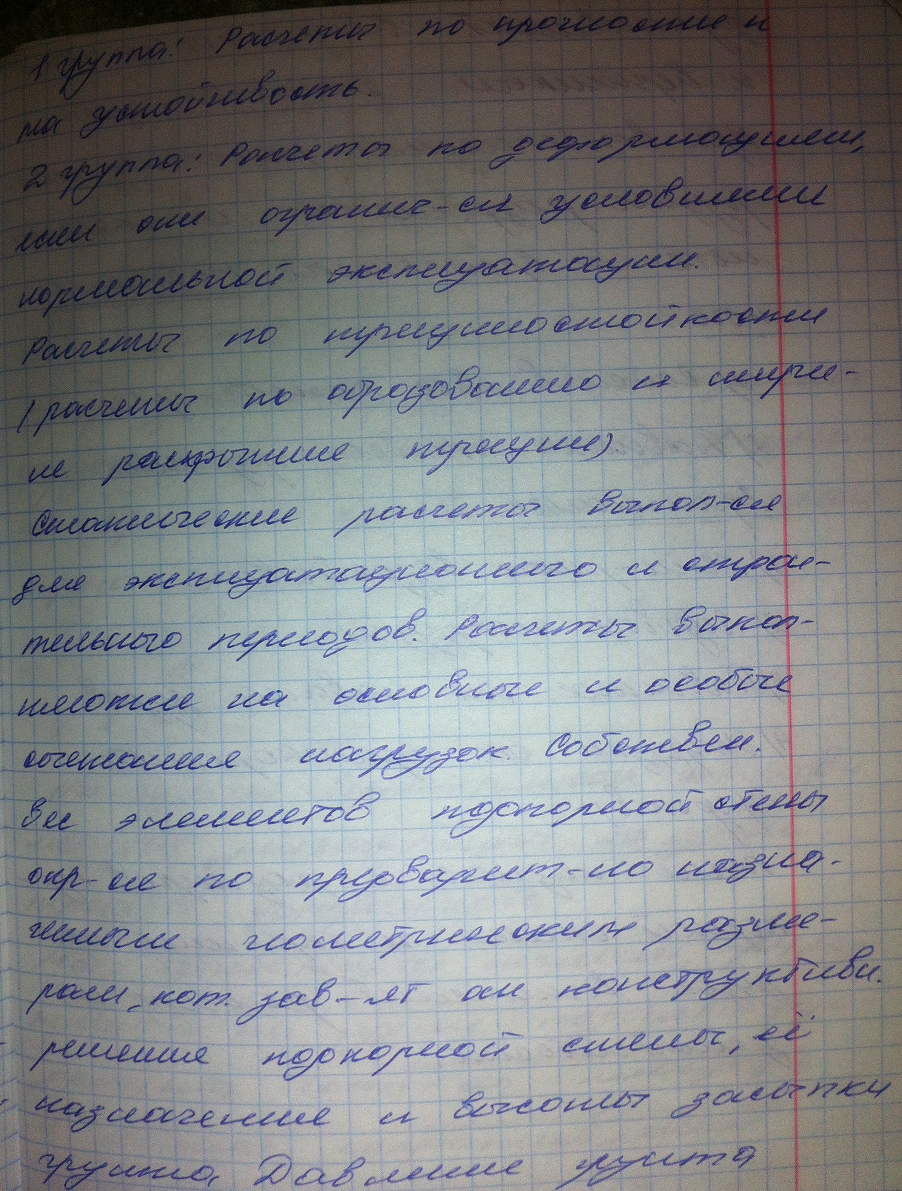 1 группа: Расчеты по прочности и
на устойчивость.
2 группа: Расчеты по деформациям,
если они огранич-ся условиями
нормальной эксплуатации.
Расчеты по трещиностойкости
(расчеты по образованию и шири-
не раскрытие трещин).
Статические расчеты выпол-ся
для эксплуатационного и строи-
тельного периодов. Расчеты выпол-
няются на основные и особые
сочетания нагрузок. Собствен.
вес элементов подпорной стены
опр-ся по предварит-но назна-
ченным геометрическим разме-
рам, кот. зав-ят от конструктивн.
решения подпорной стены, её
назначения и высоты засыпки
грунта. Давление грунта